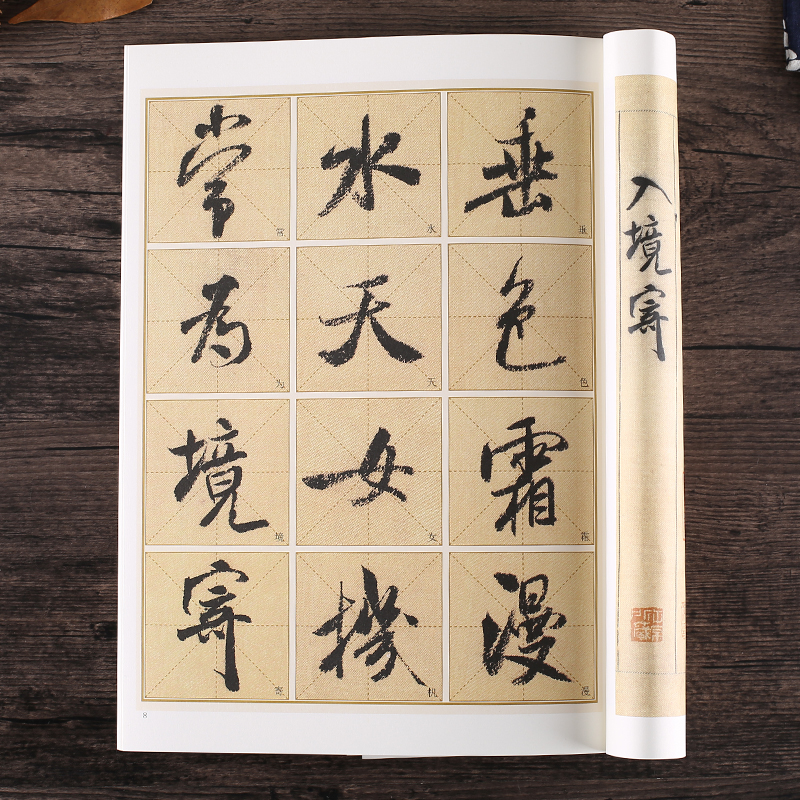 垂色霜漫
水天女機
常為境寄
垂
色
霜
漫
水
天
女
机
常
为
境
寄
8
入境寄